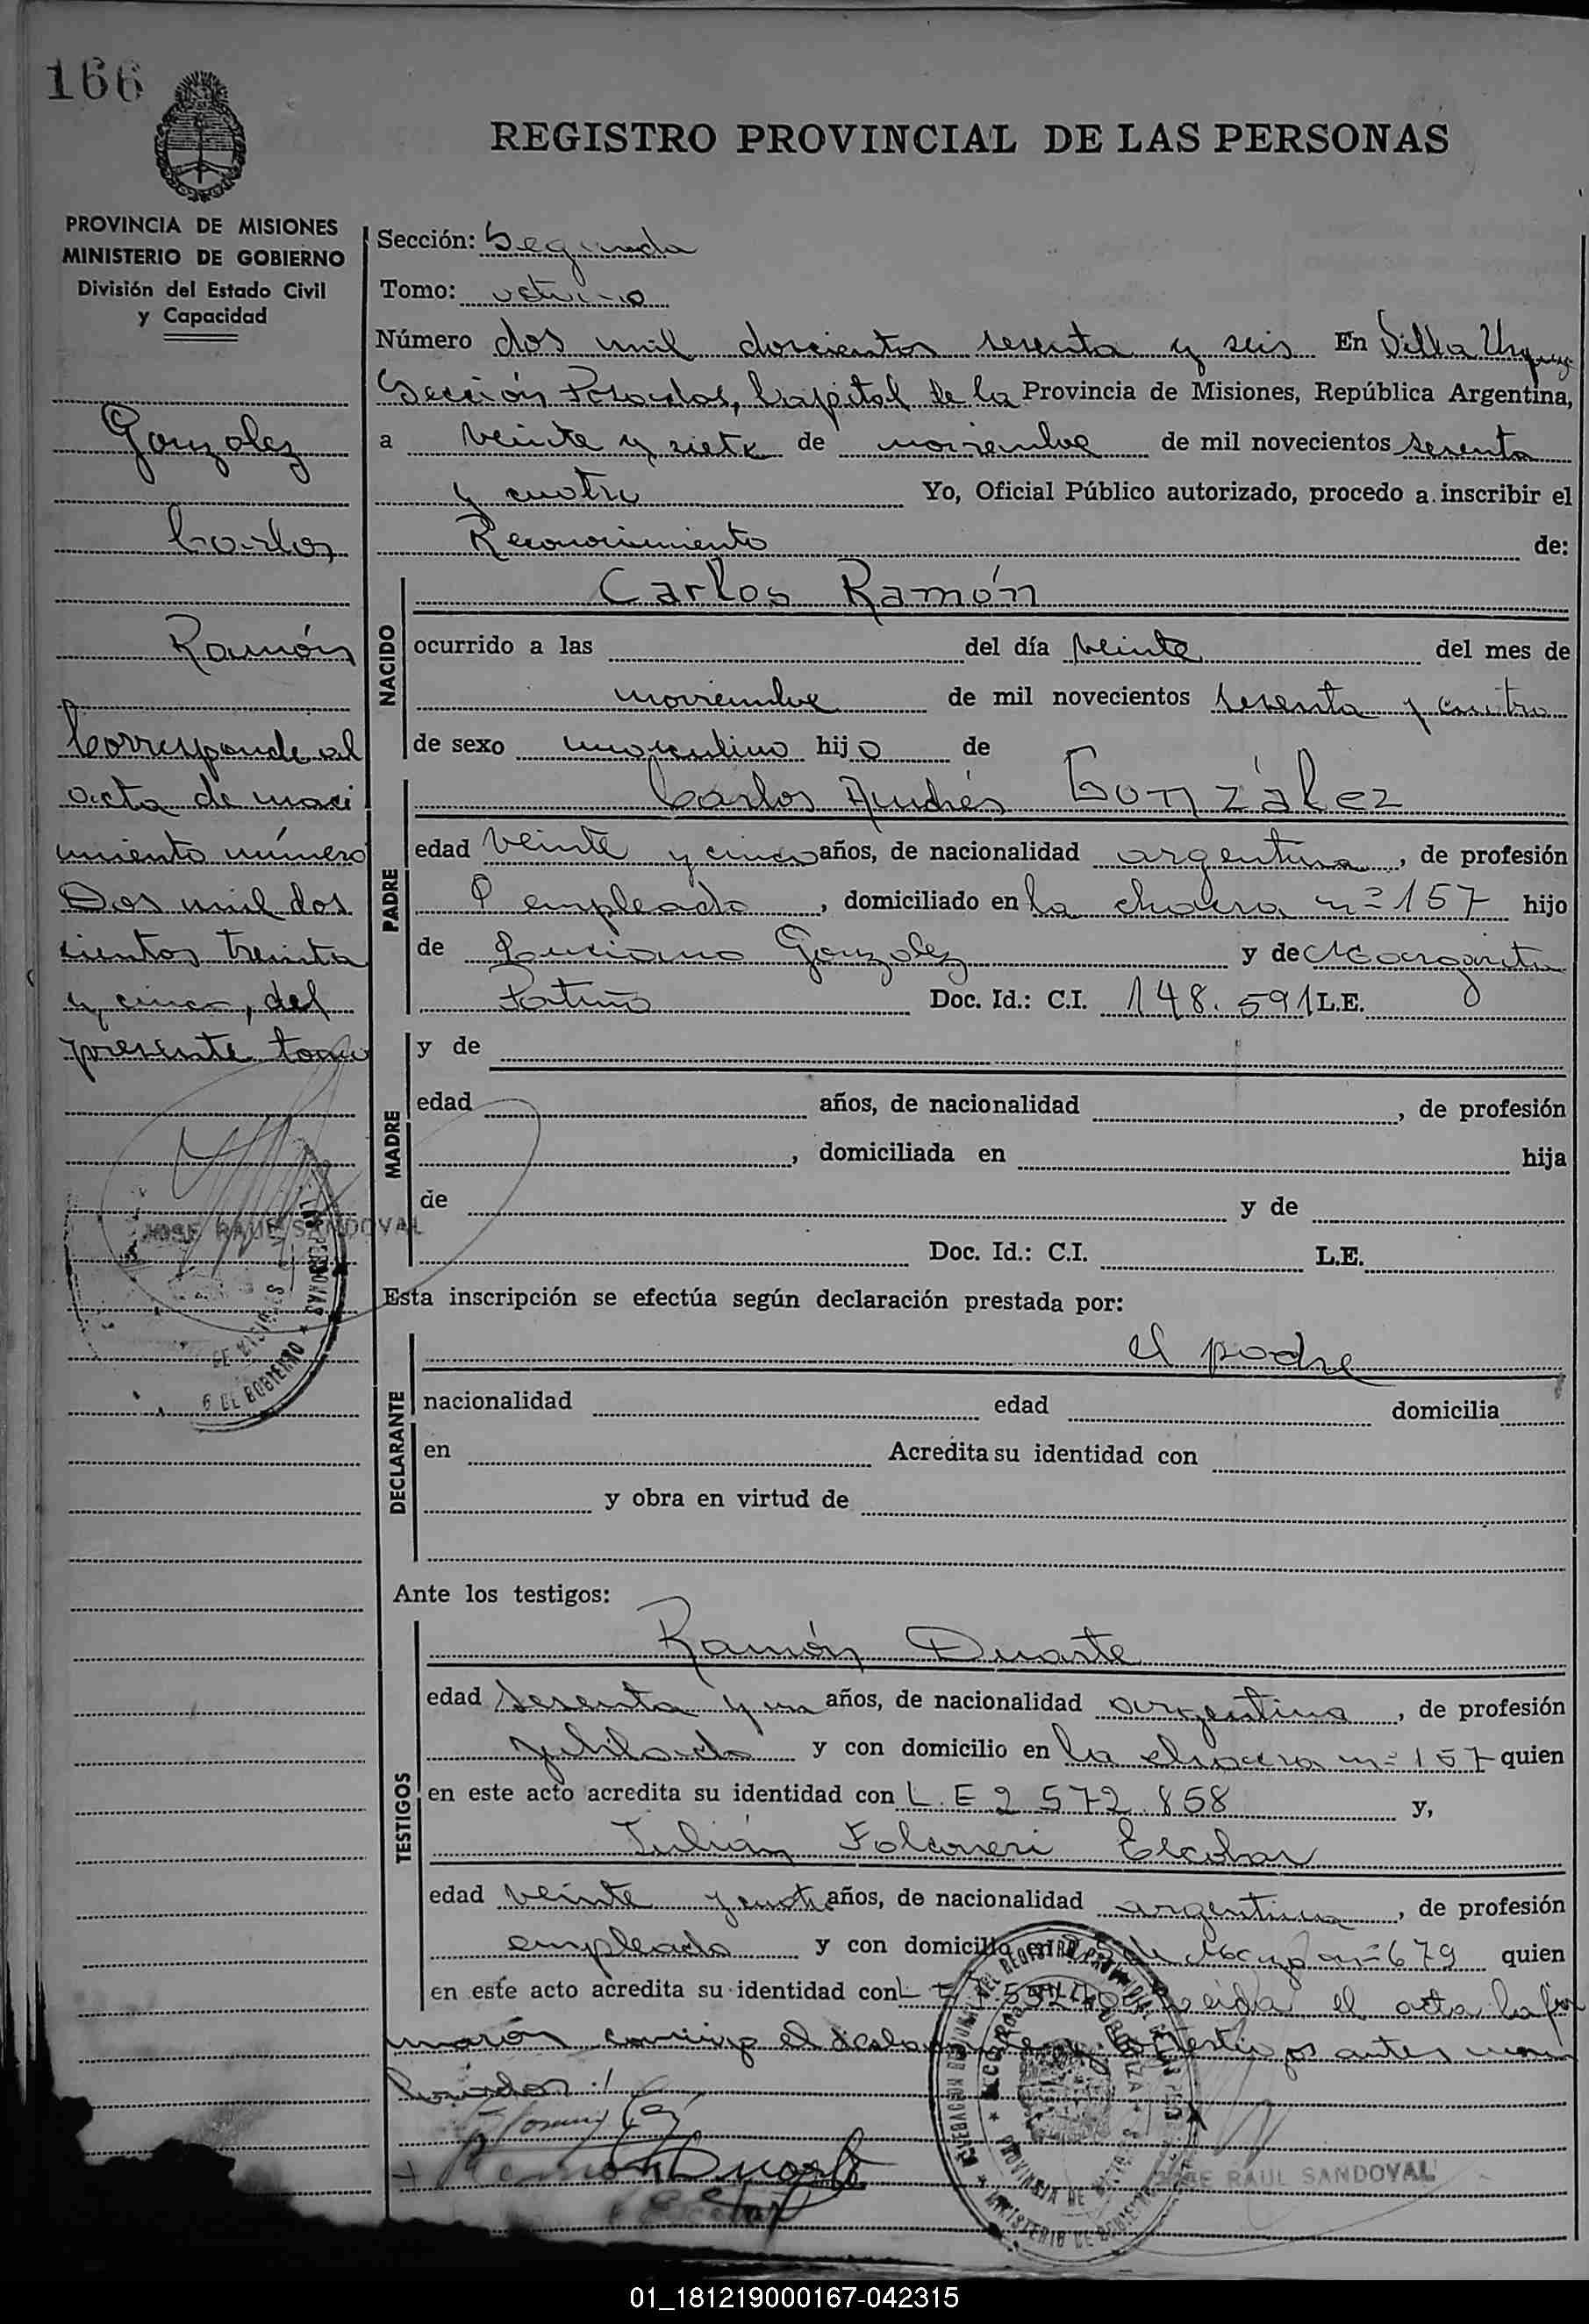 166
REGISTRO PROVINCIAL DE LAS PERSONAS
PROVINCIA DE MISIONES
MINISTERIO DE GOBIERNO
División del Estado Civil
y Capacidad
Gonzalez
Carlos
Ramón
Corresponde al
acta de naci
miento número
Dos mil dos
cientos treinta
y cinco, del
presente tomo
JOSE RAUL SANDOVAL
Sección: Segunda
Tomo: octavo
Número dos mil doscientos sesenta y seis En Villa Urquiza
Sección Posadas, Capital de la Provincia de Misiones, República Argentina,
a veinte y siete de noviembre de mil novecientos sesenta
y cuatro Yo, Oficial Público autorizado, procedo a inscribir el
Reconocimiento de:
NACIDO
Carlos Ramón
ocurrido a las del día veinte del mes de
noviembre de mil novecientos sesenta y cuatro
de sexo masculino hijo de
PADRE
Carlos Andrés González
edad veinte y cinco años, de nacionalidad argentina, de profesión
empleado, domiciliado en la chacra nº 157 hijo
de Luciano Gonzalez y de Margarita
Doc. Id.: C.I. 148.591 L.E.
MADRE
y de
edad años, de nacionalidad , de profesión
, domiciliada en hija
de y de
Doc. Id.: C.I. L.E.
Esta inscripción se efectúa según declaración prestada por:
DECLARANTE
el padre
nacionalidad edad domicilia
en Acredita su identidad con
y obra en virtud de
Ante los testigos:
TESTIGOS
Ramón Duarte
edad sesenta y un años, de nacionalidad argentina, de profesión
jubilado y con domicilio en la chacra nº 157 quien
en este acto acredita su identidad con L.E 2.572.858 y,
Julián Falconeri Escobar
edad veinte y cuatro años, de nacionalidad argentina, de profesión
empleado y con domicilio en 25 de Mayo nº 679 quien
en este acto acredita su identidad con L Leida el acta la fir
maron conmigo el declarante y los testigos antes nom
brados
Ramon Duarte
JOSE RAUL SANDOVAL
01_181219000167-042315